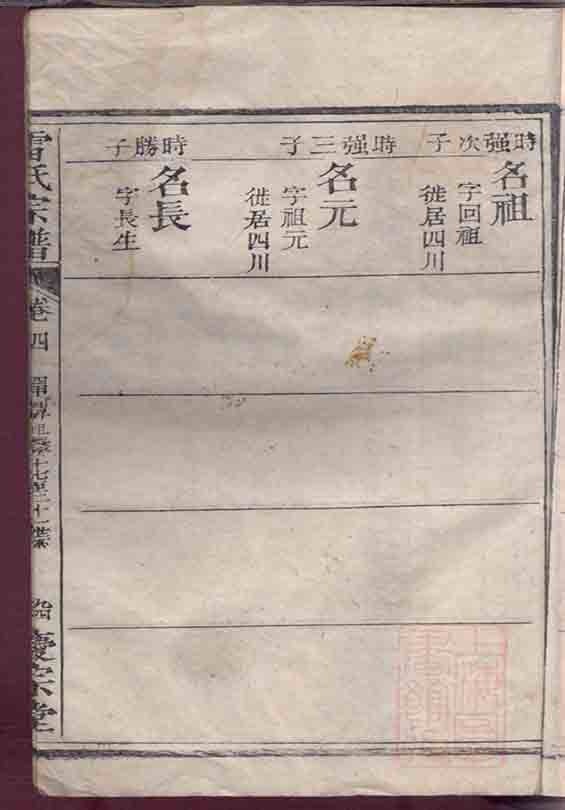 時强次子
名祖
字回祖
徙居四川
時强三子
名元
字祖元
徙居四川
時勝子
名長
字長生
雷氏宗譜
卷四
慶宗堂